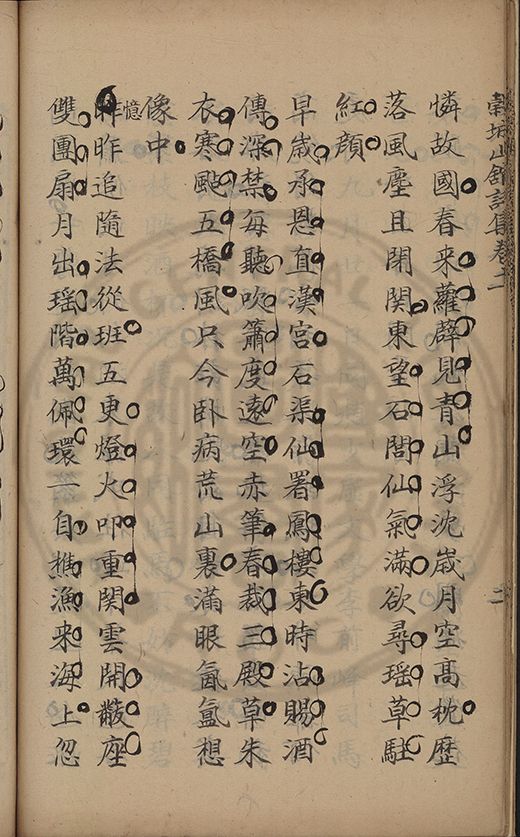 穀城山館詩集卷二
憐故國春来蘿薜見青山浮沈歲月空高枕歷
落風塵且閉関東望石閭仙氣滿欲尋瑶草駐
紅顔
早歲承恩直漢宫石渠仙署鳳樓東時沾賜酒
傳深禁每聽吹簫度遠空赤筆春裁三殿草朱
衣寒颭五橋風只今卧病荒山裏滿眼氤氲想
像中
憶昨追隨法從班五更燈火叩重関雲開黻座
雙團扇月出瑶階萬佩環一自樵漁来海上忽
二